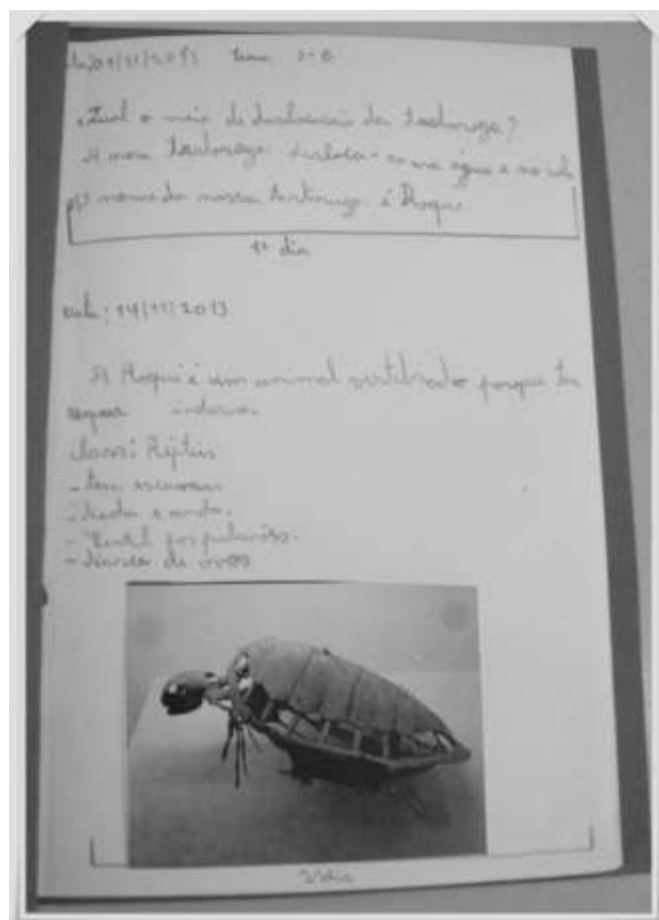 11/2013
Qual o meio de deslocação da tartaruga?
A nossa tartaruga desloca-se na água e no solo
O nome da nossa tartaruga é Roque
1º dia
14/11/2013
A Roque é um animal vertebrado porque tem
interno.
Classe: Répteis
- tem escamas
- Nada e anda.
- por pulmões.
- Nasce de ovos
2º dia